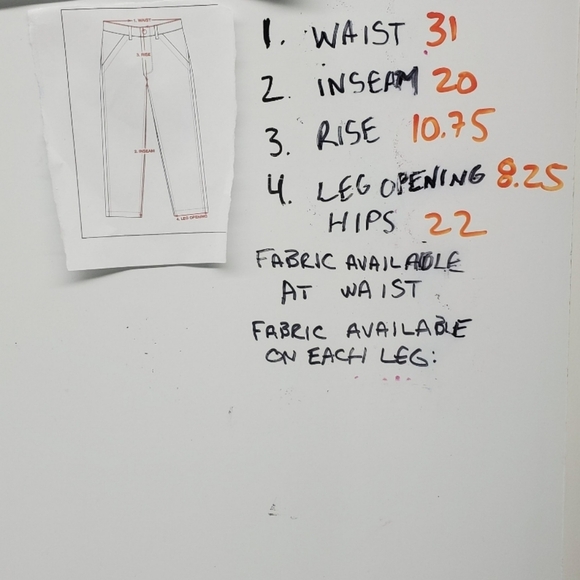 1. WAIST
2. RISE
3. INSEAM
4. LEG OPENING
1. WAIST 31
2. INSEAM 20
3. RISE 10.75
4. LEG OPENING 8.25
HIPS 22
FABRIC AVAILABLE
AT WAIST
FABRIC AVAILABLE
ON EACH LEG: